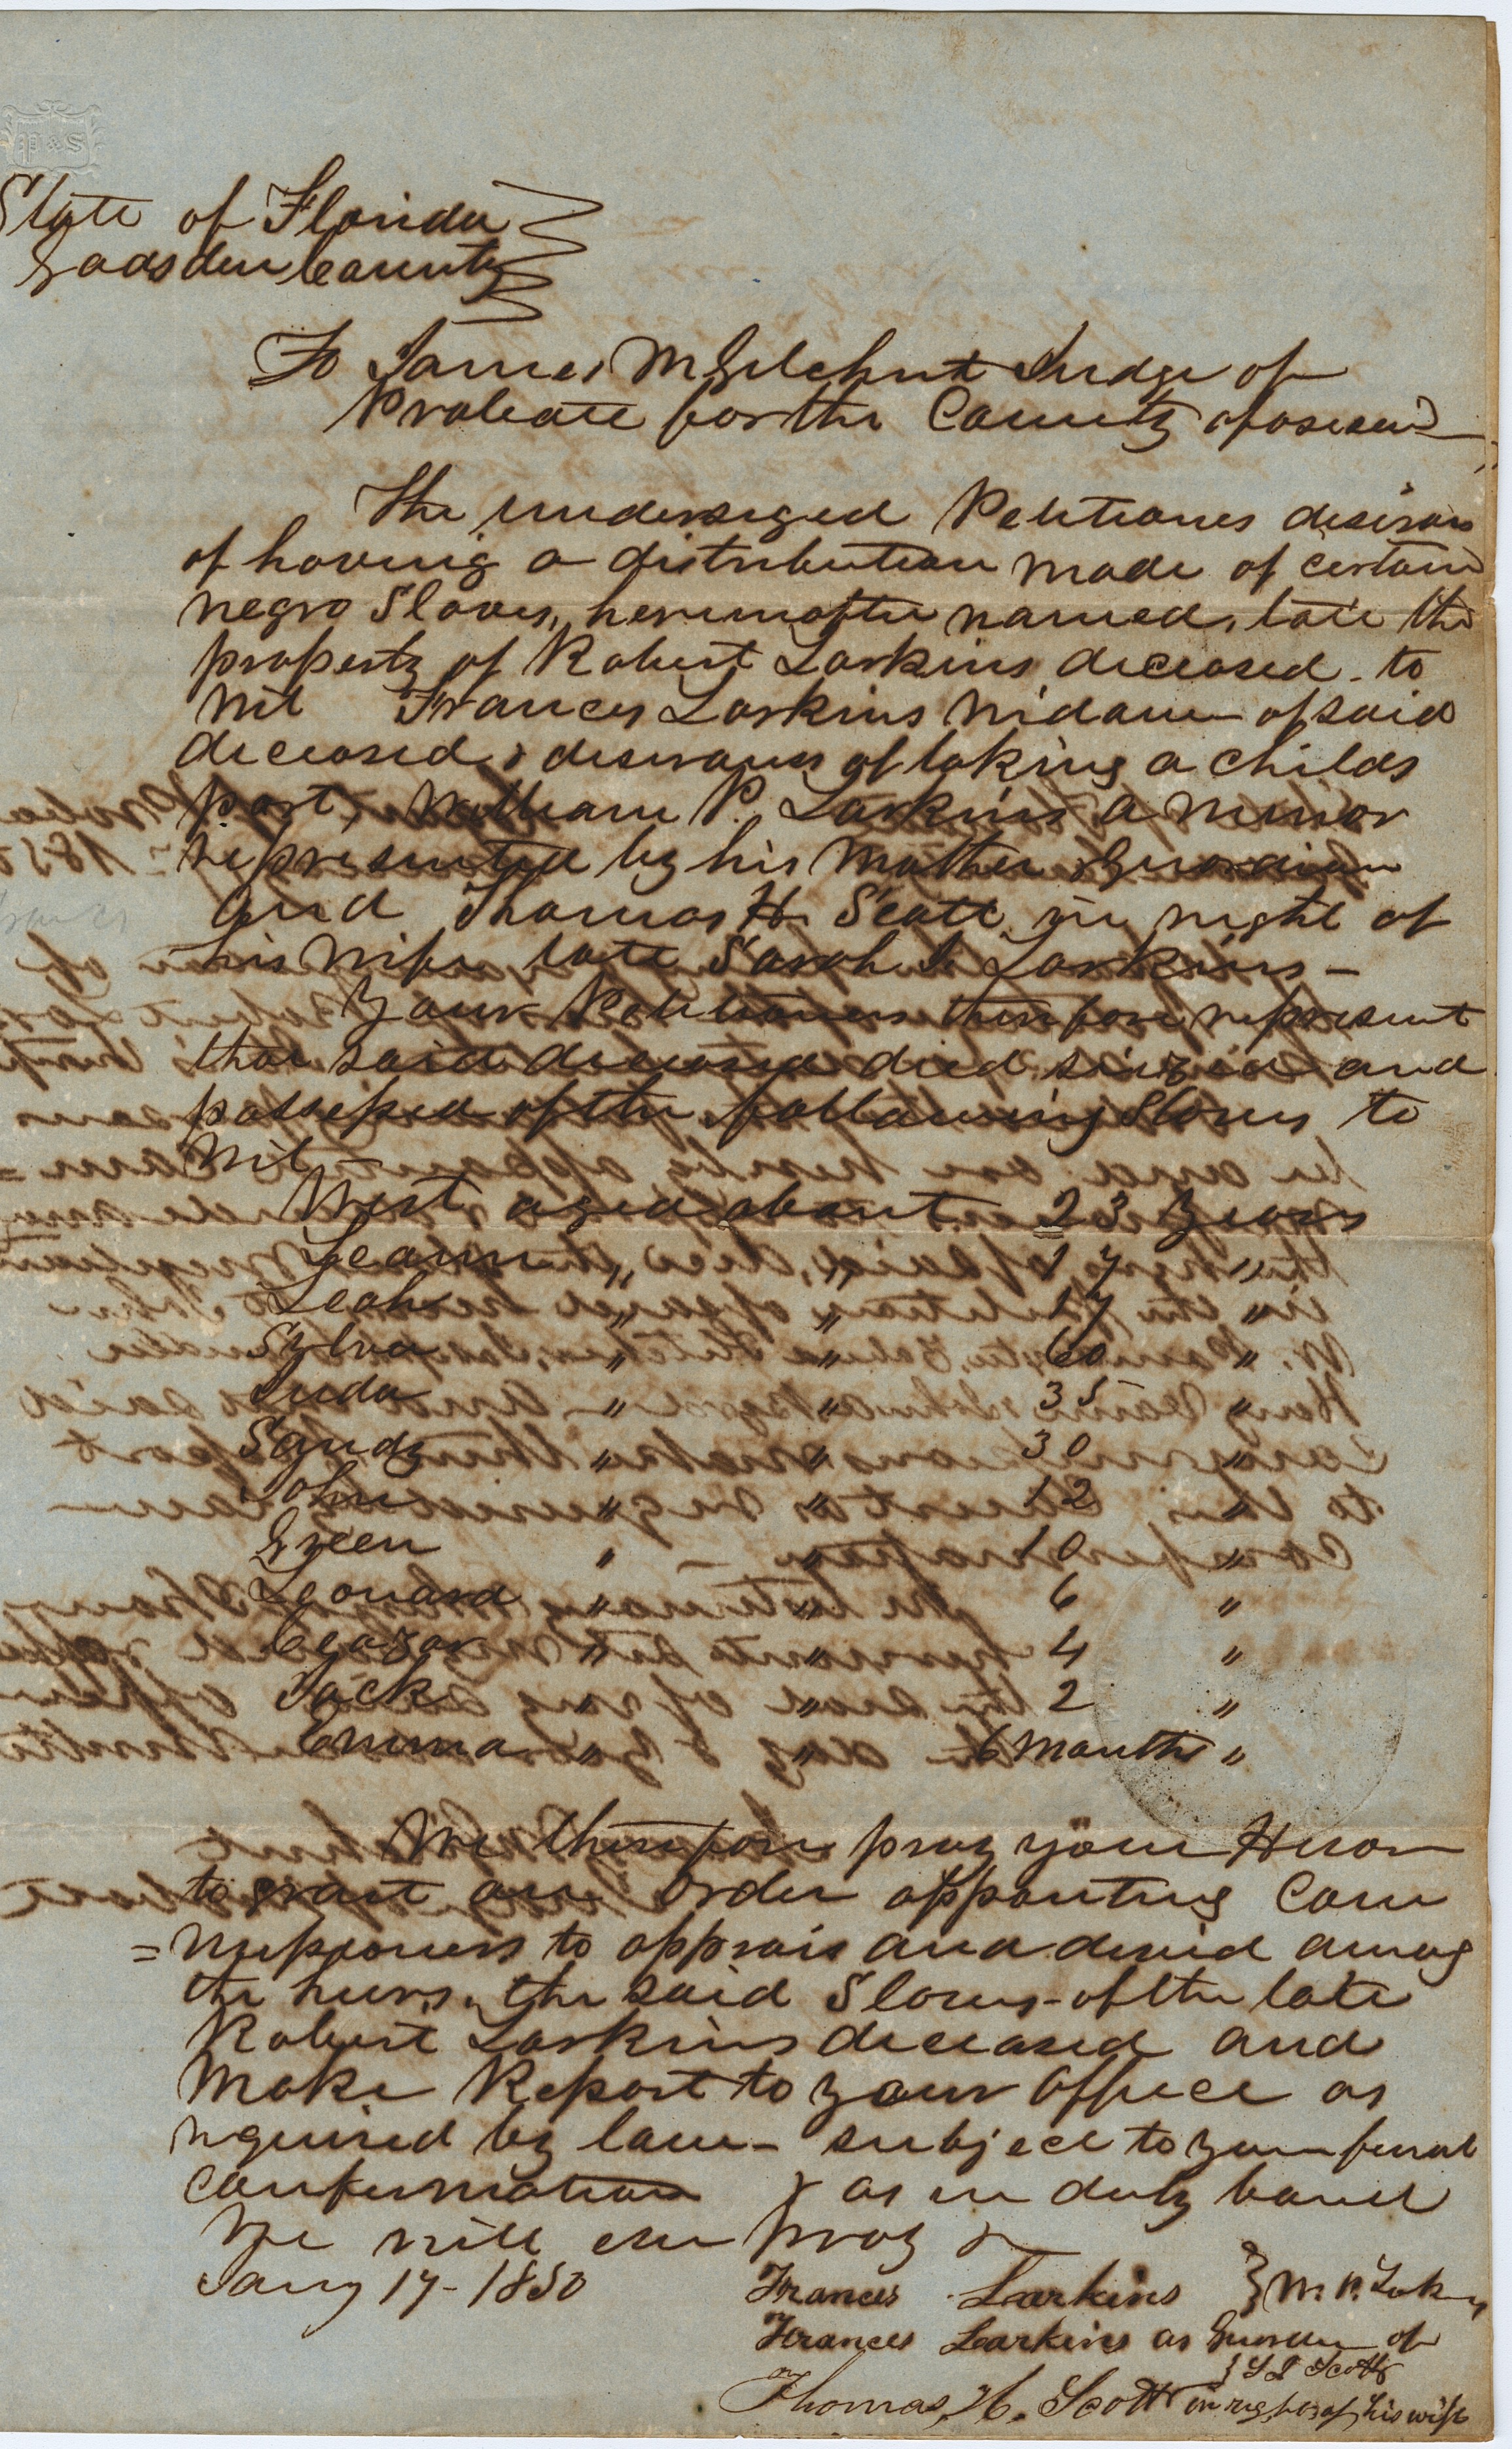 P & S
State of Florida
Gadsden County
To James M Gilchrist Judge of
Probate for the County aforesaid
The undersiged Petitioners desirous
of having a distribution made of certain
negro Slaves, hereinafter named, late the
property of Robert Larkins deceased. to
wit Frances Larkins widow of said
deceased & desirous of taking a childs
part, William P. Larkins a minor
represented by his Mother & Guardian
and Thomas H. Scott in right of
his wife late Sarah J. Larkins -
Your Petitioners therefore represent
that said deceased died siezed and
possessed of the following Slaves to
wit -
West aged about 23 Years
Leann " " 17 "
Leah " " 17 "
Sylva " " 60 "
Juda " " 35 "
Sandy " " 30 "
John " " 12 "
Green " " 10 "
Leonard " " 6 "
Ceazar " " 4 "
Jack " " 2 "
Emma " " 6 Months "
We therefore pray your Honor
to grant an order appointing Com
=missioners to apprais and devid among
the heirs, the said Slaves - of the late
Robert Larkins deceased and
Make Report to your office as
required by law - subject to your final
confirmation & as in duty bound
We will ever pray &
Jany 17 - 1850
Frances Larkins } W. P. Larkins
Frances Larkins as Guardian of
} S J Scott
Thomas, H. Scott in right of his wife